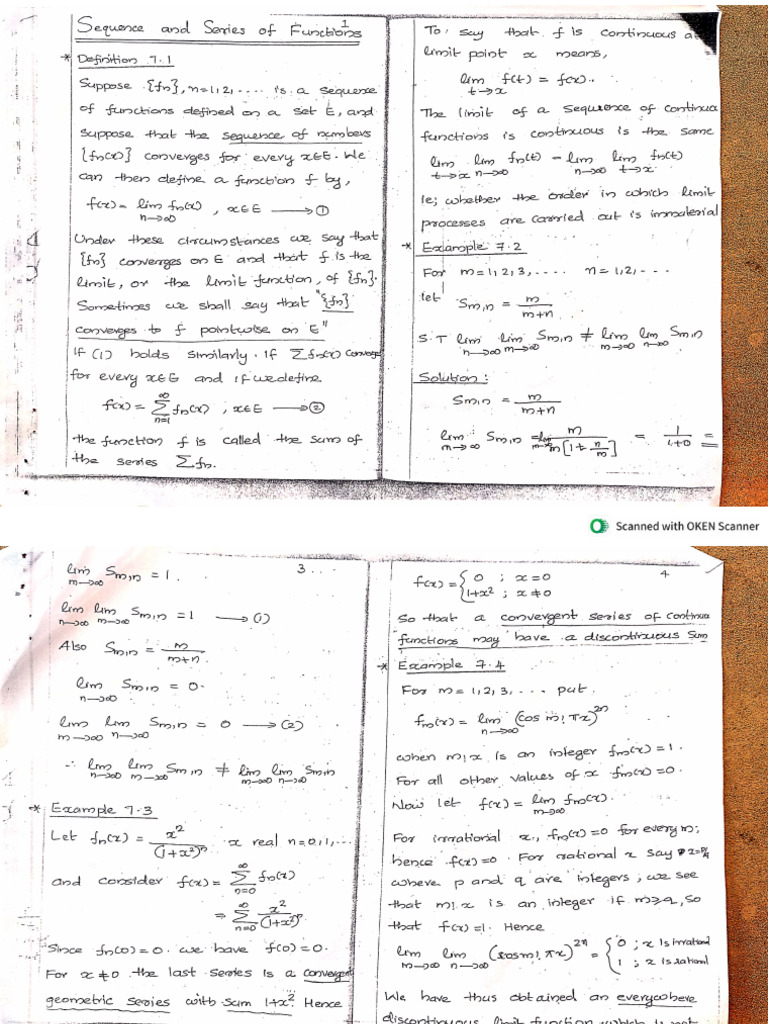 Sequence and Series of Functions
1
* Definition 7.1
Suppose {fn}, n=1,2,.... is a sequence
of functions defined on a set E, and
suppose that the sequence of numbers
{fn(x)} converges for every x∈E. We
can then define a function f by,
f(x) = lim n→∞ fn(x), x∈E → ①
Under these circumstances we say that
{fn} converges on E and that f is the
limit, or the limit function, of {fn}.
Sometimes we shall say that "{fn}
converges to f pointwise on E"
if (1) holds similarly. If Σ fn(x) converge
for every x∈E and if we define
f(x) = Σ n=1 ∞ fn(x), x∈E → ②
the function f is called the sum of
the series Σ fn.
To say that f is continuous a
limit point x means,
lim t→x f(t) = f(x)..
The limit of a sequence of continuo
functions is continuous is the same
lim t→x lim n→∞ fn(t) = lim n→∞ lim t→x fn(t)
ie; whether the order in which limit
processes are carried out is immaterial
* Example 7.2
For m=1,2,3,..... n=1,2,...
let Sm,n = m/m+n
S.T lim n→∞ lim m→∞ Sm,n ≠ lim m→∞ lim n→∞ Sm,n
Solution:
Sm,n = m/m+n
lim m→∞ Sm,n = lim m→∞ m/m[1+n/m] = 1/1+0 =
Scanned with OKEN Scanner
3...
lim m→∞ Sm,n = 1.
lim n→∞ lim m→∞ Sm,n = 1 → (1)
Also Sm,n = m/m+n.
lim n→∞ Sm,n = 0.
lim m→∞ lim n→∞ Sm,n = 0 → (2)
∴ lim n→∞ lim m→∞ Sm,n ≠ lim m→∞ lim n→∞ Sm,n
* Example 7.3
Let fn(x) = x²/(1+x²)ⁿ x real n=0,1,...
and consider f(x) = Σ n=0 ∞ fn(x)
⇒ Σ n=0 ∞ x²/(1+x²)ⁿ
Since fn(0)=0. we have f(0)=0.
For x≠0 the last series is a convergent
geometric series with sum 1+x². Hence
4
f(x) = {0 ; x=0
1+x² ; x≠0
So that a convergent series of continuo
functions may have a discontinuous sum
* Example 7.4
For m=1,2,3,... put
fm(x) = lim n→∞ (cos m! πx)²ⁿ
when m!x is an integer fm(x)=1.
For all other values of x fm(x)=0.
Now let f(x) = lim m→∞ fm(x).
For irrational x, fm(x)=0 for every m;
hence f(x)=0. For rational x say x=p/q
where p and q are integers, we see
that m!x is an integer if m≥q, so
that f(x)=1. Hence
lim m→∞ lim n→∞ (cos m! πx)²ⁿ = {0 ; x is irrational
1 ; x is rational
We have thus obtained an everywhere
discontinuous limit function which is not